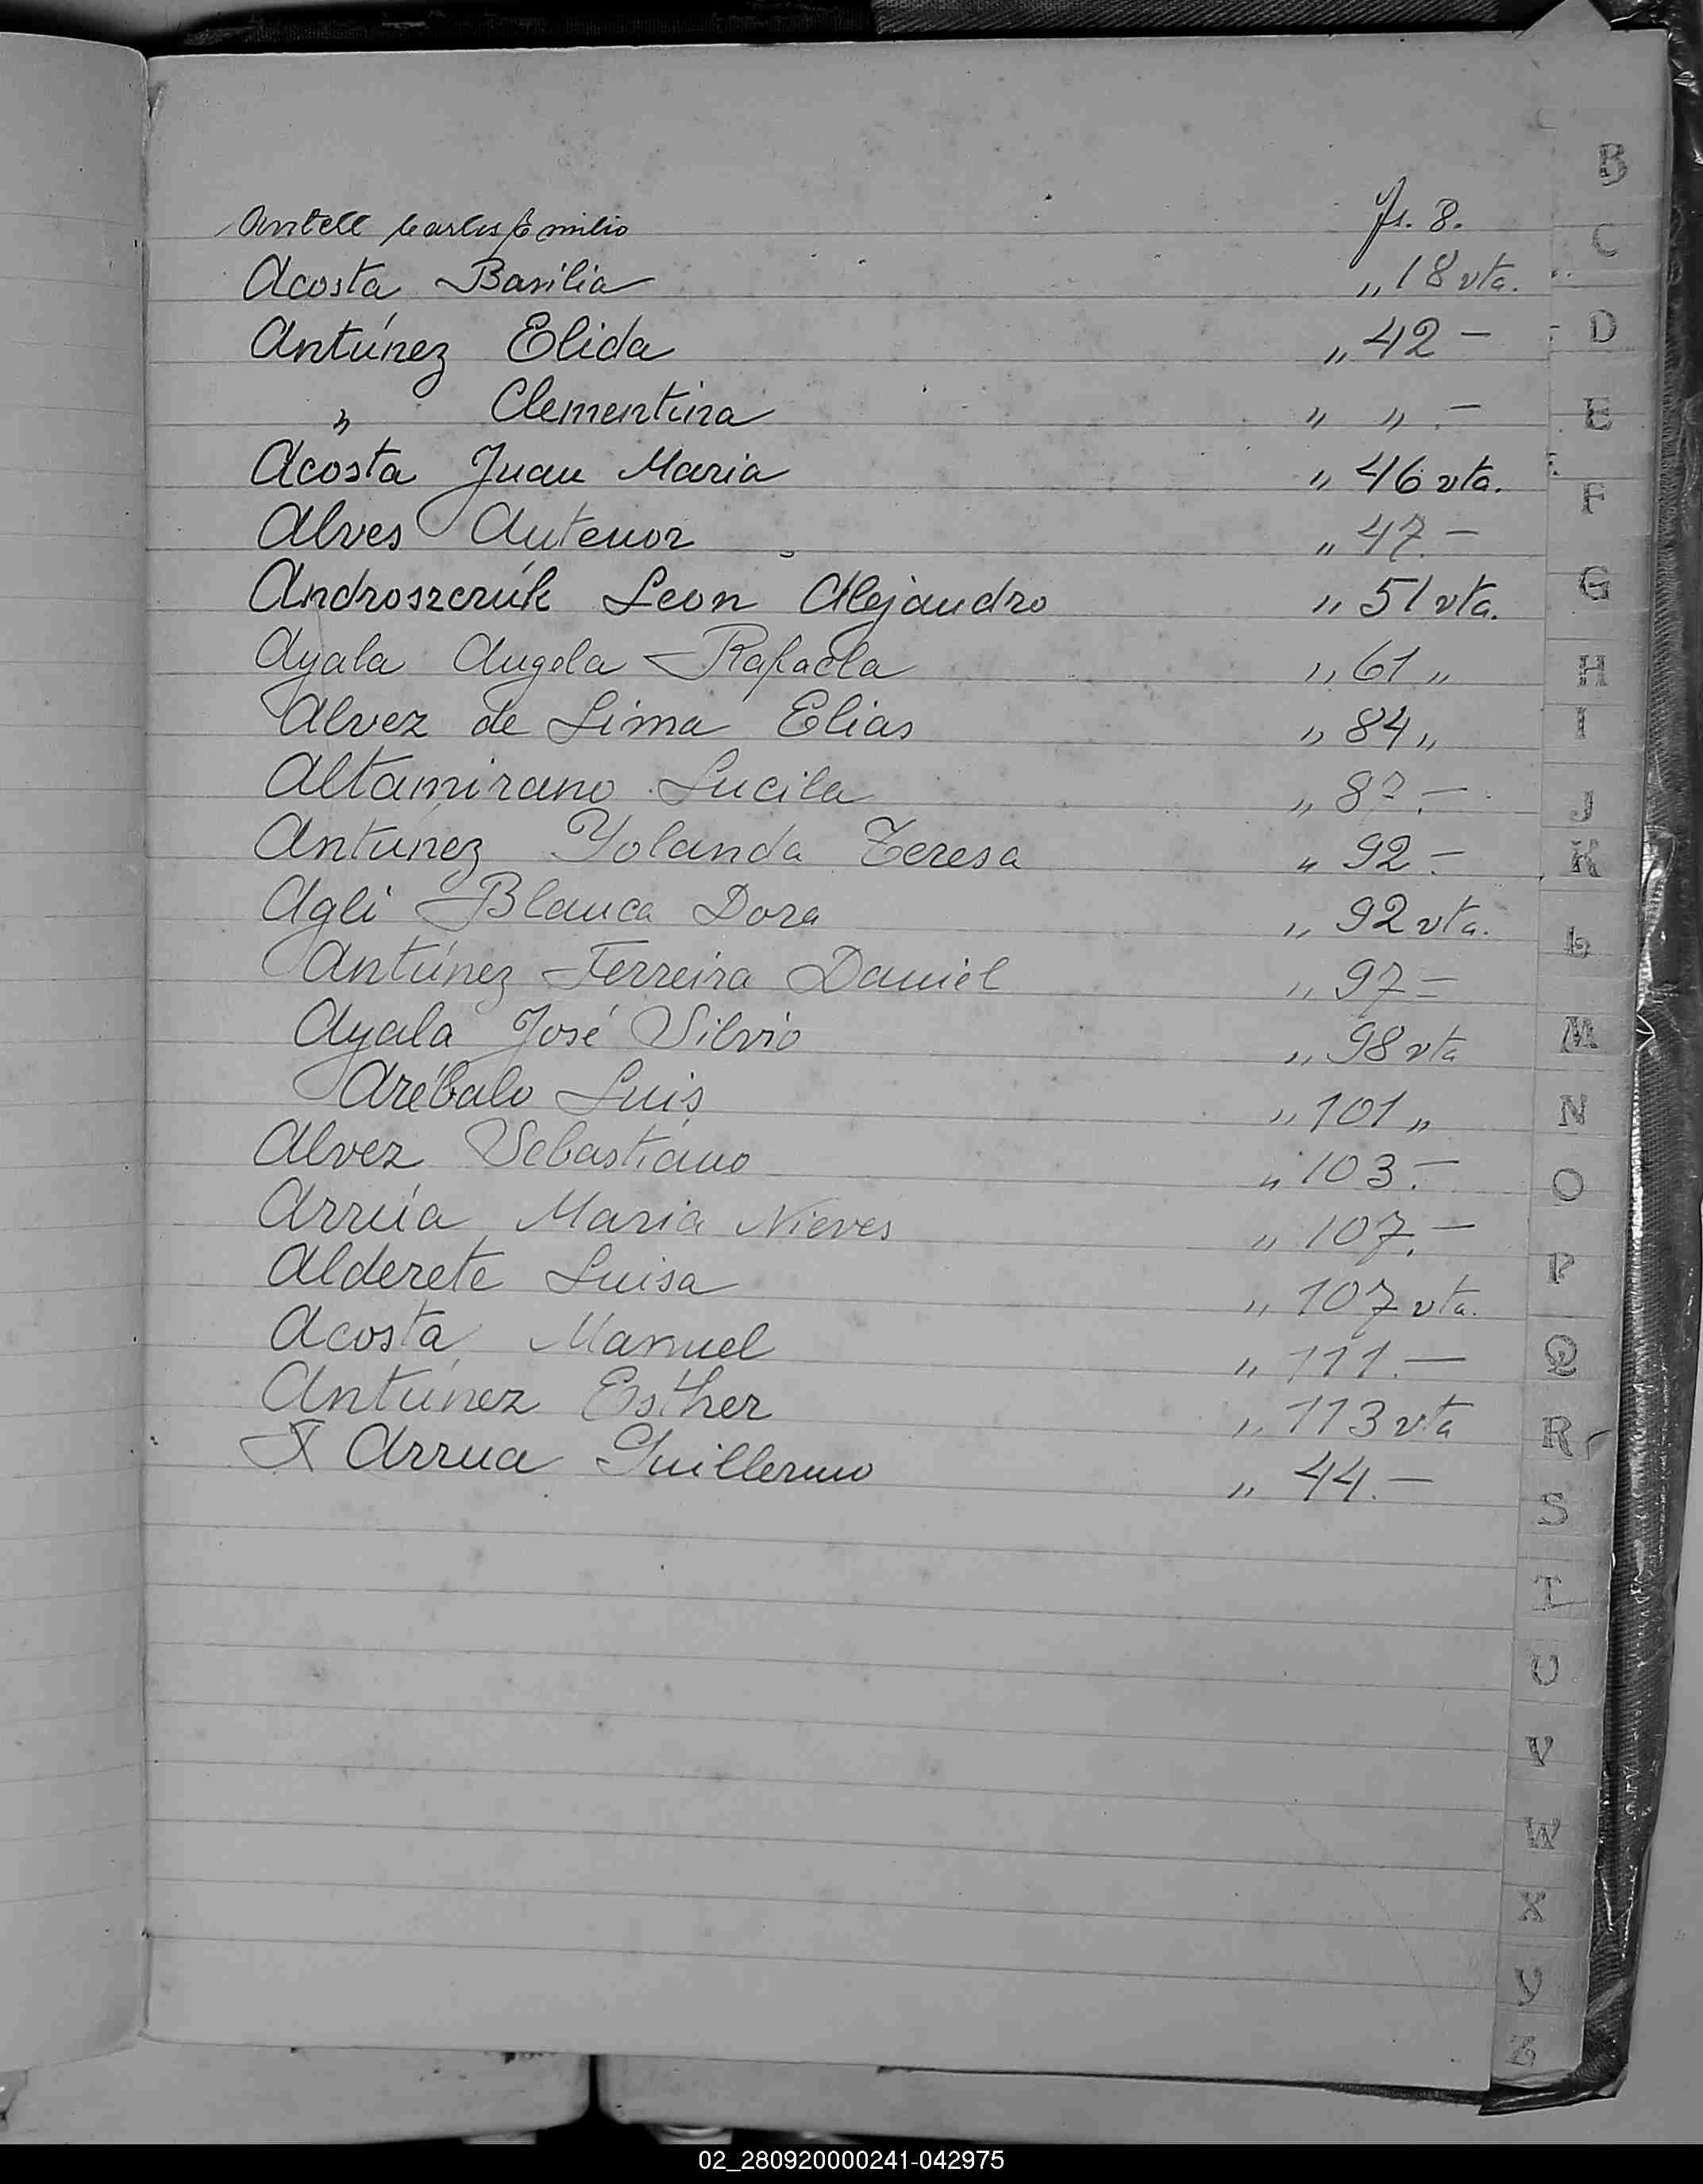 Antell Carlos Emilio fs. 8.
Acosta Basilia „ 18 vta.
Antúnez Elida „ 42 –
„ Clementina „ „ . –
Acosta Juan Maria „ 46 vta.
Alves Autenor „ 47. –
Androszcrúk Leon Alejandro „ 51 vta.
Ayala Angela Rafaela „ 61 „
Alvez de Lima Elias „ 84 „
Altamirano Lucila „ 87. –
Antúnez Yolanda Teresa „ 92 –
Agli Blanca Dora „ 92 vta.
Antúnez Ferreira Daniel „ 97 –
Ayala José Silvio „ 98 vta
Arébalo Luis „ 101 „
Alvez Sebastiano „ 103. –
Arrúa Maria Nieves „ 107. –
Alderete Luisa „ 107 vta.
Acosta Manuel „ 111. –
Antúnez Esther „ 113 vta
X Arrua Guillermo „ 44. –
B
C
D
E
F
G
H
I
J
K
L
M
N
O
P
Q
R
S
T
U
V
W
X
Y
Z
02_280920000241-042975